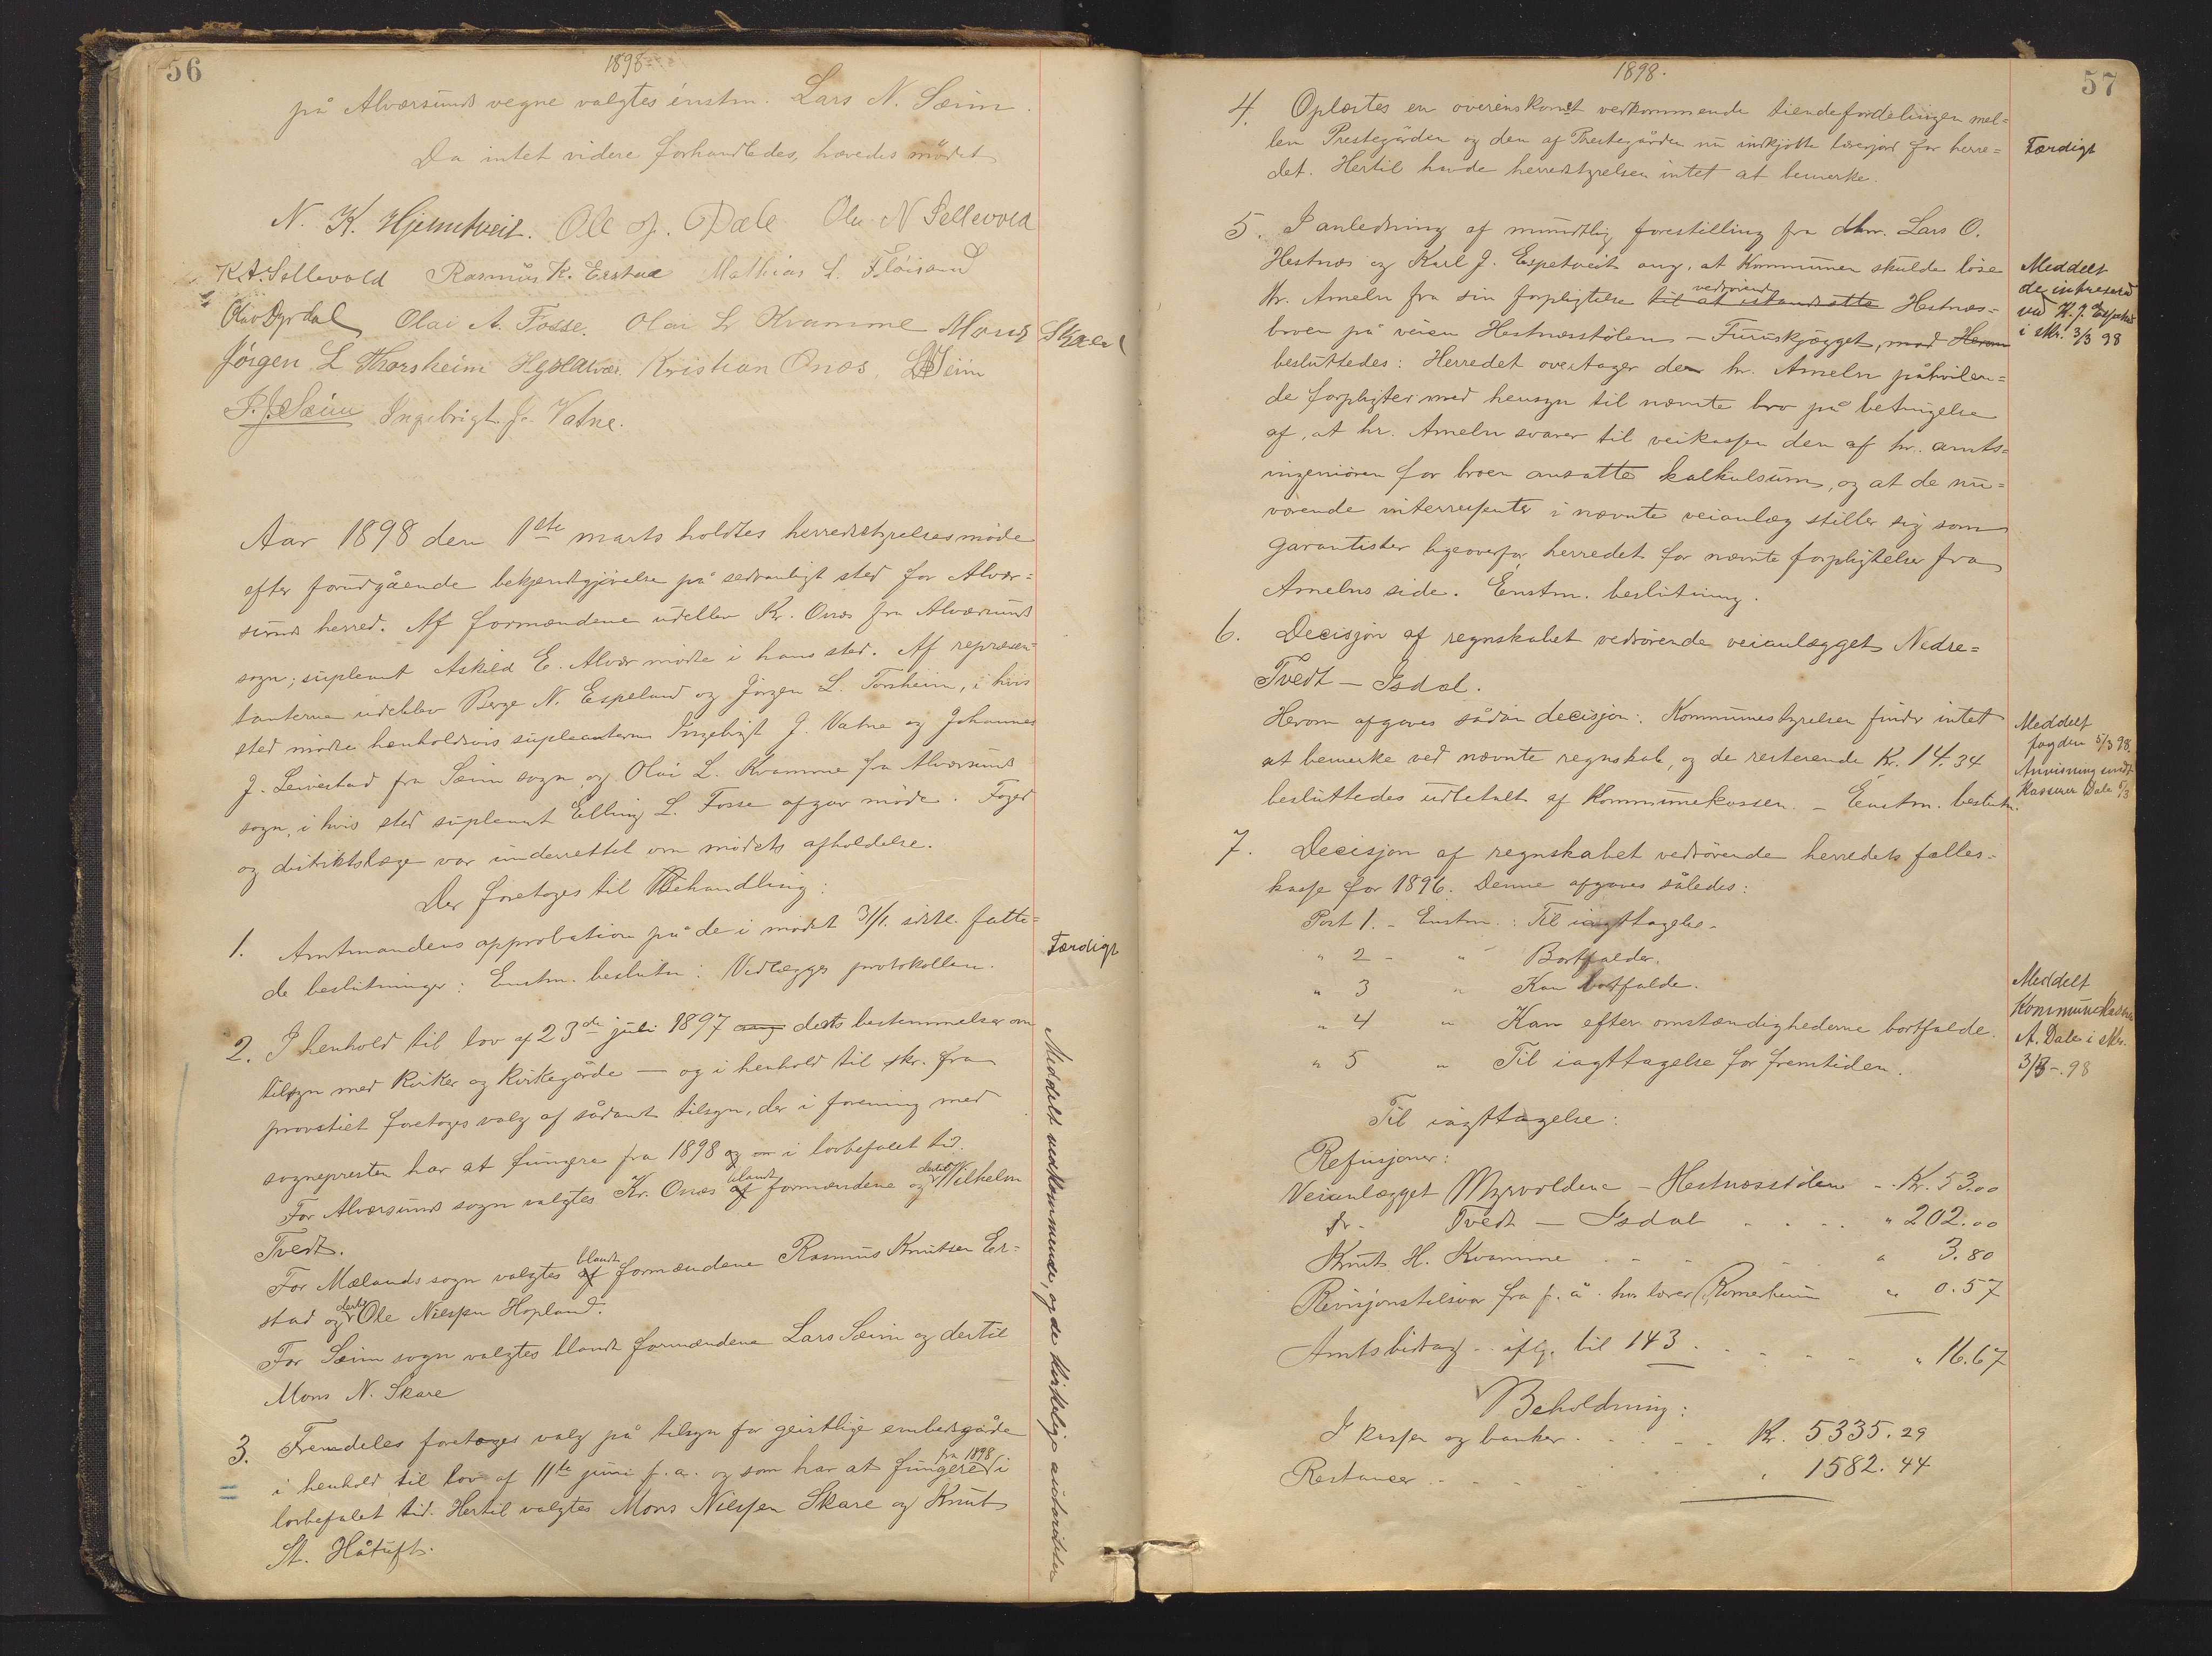 56
1898
på Alværsunds vegne valgtes enstm. Lars N. Sæim.
Da intet videre forhandledes, hævedes mødet
N. K. Hjelmtveit. Ole J. Dale Ole N Sellevold
K.A. Sellevold Rasmus K. Erstad Mathias L. Fløisand
Olav Dyrdal Olai A. Fosse. Olai L Kvamme Mons Skare
Jörgen L Thorsheim Kristian Onæs. Seim
I. J. Sæim Ingebrigt J. Vatne.
Aar 1898 den 1ste marts holdtes herredstyrelsesmöde
efter forudgående bekjendtgjörelse på sedvanligt sted for Alvær=
sunds herred. Af formændene udeblev Kr. Onæs fra Alværsunds
sogn; supleant Askild E. Alvær mødte i hans sted. Af repræsen=
tanterne udeblev Berge N. Espeland og Jörgen L. Torsheim, i hvis
sted mødte henholdsvis supleanterne Ingebrigt J. Vatne og Johannes
J. Leivestad fra Sæim sogn, og Olai L. Kvamme fra Alværsunds
sogn, i hvis sted supleant Elling L. Fosse afgav møde. Foged
og distriktslæge var underrettet om mødets afholdelse.
Der foretoges til Behandling:
1. Amtmandens approbation på de i mødet 31/1. sidstl. fatte=
de beslutninger: Enstm. beslutn: Vedlægges protokollen.
Færdigt
2. I henhold til lov af 23de juli 1897 ang dens bestemmelser om
tilsyn med kirker og kirkegårde — og i henhold til skr. fra
provstiet foretoges valg af sådant tilsyn, der i forening med
sognepresten har at fungere fra 1898 og i lovbefalet tid.
For Alværsunds sogn valgtes Kr. Onæs blandt af formændene og dertil Wilhelm
Tvedt.
For Mælands sogn valgtes blandt af formændene Rasmus Knutsen Er=
stad og dertil Ole Nilssen Hopland.
For Sæim sogn valgtes blandt formændene Lars Sæim og dertil
Mons N. Skare
Meddelt vedkommende, og de kirkelige autoriteter
3. Fremdeles foretoges valg på tilsyn for geistlige embedsgårde
i henhold til lov af 11te juni f. a. og som har at fungere fra 1898 i
lovbefalet tid. Hertil valgtes Mons Nilssen Skare og Knut
St. Håtuft.
57
1898.
4. Oplæstes en overenskomst vedkommende tiendefordelingen mel=
lem Prestegården og den af Prestegården nu indkjøtte lærerjord for herre=
det. Hertil havde herredstyrelsen intet at bemerke.
Færdigt
5. I anledning af mundtlig forestilling fra dhrr. Lars O.
Hestnæs og Karl J. Espetveit ang. at Kommunen skulde løse
Hr. Ameln fra sin forpligtelse til at istandsætte vedrörende Hestnæs=
broen på veien Hestnæsstölen — Furuskjægget, mod Herom
besluttedes: Herredet overtager den hr. Ameln påhvilen=
de forpligter med hensyn til nævnte bro på betingelse
af, at hr. Ameln svarer til veikassen den af hr. amts=
ingeniören for broen ansatte kalkulsum, og at de nu=
værende interressenter i nævnte veianlæg stiller sig som
garantister ligeoverfor herredet for nævnte forpligtelser fra
Amelns side. Enstm. beslutning.
Meddelt
de intresered
ved K. J. Espetveit
i skr. 3/3 98
6. Decisjon af regnskabet vedrörende veianlægget Nedre=
Tvedt — Isdal.
Herom afgaves sådan decisjon: Kommunestyrelsen finder intet
at bemerke ved nævnte regnskab, og de resterende Kr. 14.34
besluttedes udbetalt af Kommunekassen. — Enstm. beslutn.
Meddelt
fogden 5/3 98.
Anvisning sendt
Kasserer Dale 5/3
7. Decisjon af regnskabet vedrörende herredets fælles=
kasse for 1896. Denne afgaves således:
Post 1. - Enstm.: Til iagttagelse.
" 2 - " Bortfalder.
" 3 " Kan bortfalde.
" 4 " Kan efter omstændighederne bortfalde.
" 5 " Til iagttagelse for fremtiden.
Meddelt
Kommunekasserer
A. Dale i skr.
3/3-.98
Til iagttagelse:
Refusjoner:
Veianlægget Myrvoldene — Hestnæsstölen - Kr. 53.00
Do - Tvedt — Isdal . . . . " 202.00
Knut H. Kvamme . . . . " 3.80
Revisjonstilsvar fra f. å. hos lærer Romerheim " 0.57
Amtsbidrag - iflg. bil 143 . . . . . " 16.67
Beholdning:
I kassen og banker . . . . . Kr. 5335.29
Restancer . . . . . " 1582.44